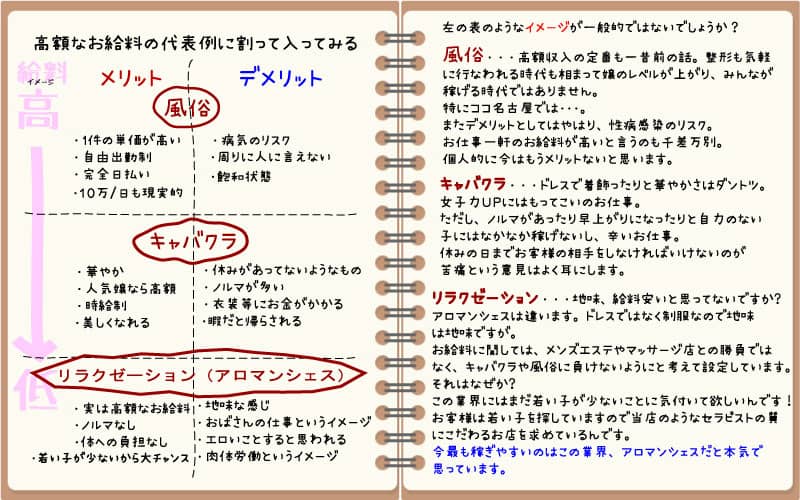 高額なお給料の代表例に割って入ってみる
給料
イメージ
高
低
メリット
デメリット
風俗
・1件の単価が高い
・自由出勤制
・完全日払い
・10万/日も現実的
・病気のリスク
・周りに人に言えない
・飽和状態
キャバクラ
・華やか
・人気嬢なら高額
・時給制
・美しくなれる
・休みがあってないようなもの
・ノルマが多い
・衣装等にお金がかかる
・暇だと帰らされる
リラクゼーション（アロマンシェス）
・実は高額なお給料
・ノルマなし
・体への負担なし
・若い子が少ないから大チャンス
・地味な感じ
・おばさんの仕事というイメージ
・エロいことすると思われる
・肉体労働というイメージ
左の表のようなイメージが一般的ではないでしょうか？
風俗・・・高額収入の定番も一昔前の話。整形も気軽
に行なわれる時代も相まって嬢のレベルが上がり、みんなが
稼げる時代ではありません。
特にココ名古屋では・・・。
またデメリットとしてはやはり、性病感染のリスク。
お仕事一軒のお給料が高いと言うのも千差万別。
個人的に今はもうメリットないと思います。
キャバクラ・・・ドレスで着飾ったりと華やかさはダントツ。
女子力UPにはもってこいのお仕事。
ただし、ノルマがあったり早上がりになったりと自力のない
子にはなかなか稼げないし、辛いお仕事。
休みの日までお客様の相手をしなければいけないのが
苦痛という意見はよく耳にします。
リラクゼーション・・・地味、給料安いと思ってないですか？
アロマンシェスは違います。ドレスではなく制服なので地味
は地味ですが。
お給料に関しては、メンズエステやマッサージ店との勝負では
なく、キャバクラや風俗に負けないようにと考えて設定しています。
それはなぜか？
この業界にはまだ若い子が少ないことに気付いて欲しいんです！
お客様は若い子を探していますので当店のようなセラピストの質
にこだわるお店を求めているんです。
今最も稼ぎやすいのはこの業界、アロマンシェスだと本気で
思っています。